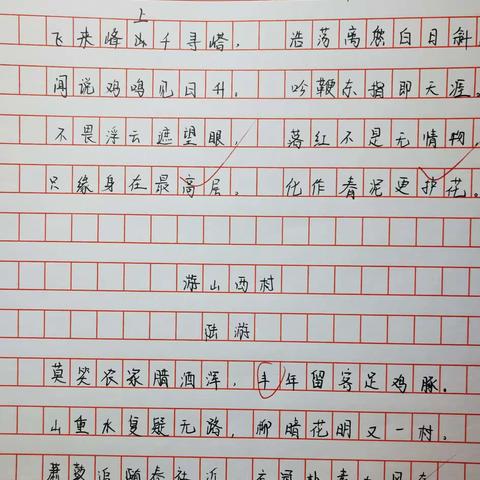 上
飞来峰山千寻塔， 浩荡离愁白日斜
闻说鸡鸣见日升。 吟鞭东指即天涯。
不畏浮云遮望眼， 落红不是无情物，
只缘身在最高层。 化作春泥更护花。
游山西村
陆游
莫笑农家腊酒浑，丰年留客足鸡豚。
山重水复疑无路，柳暗花明又一村。
追随春社近，衣冠朴素